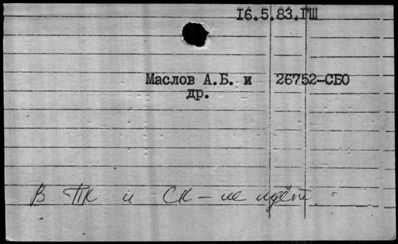 16.5.83.ГШ
Маслов А.Б. и 26752-СБО
др.
В ТК и СК – не идёт.